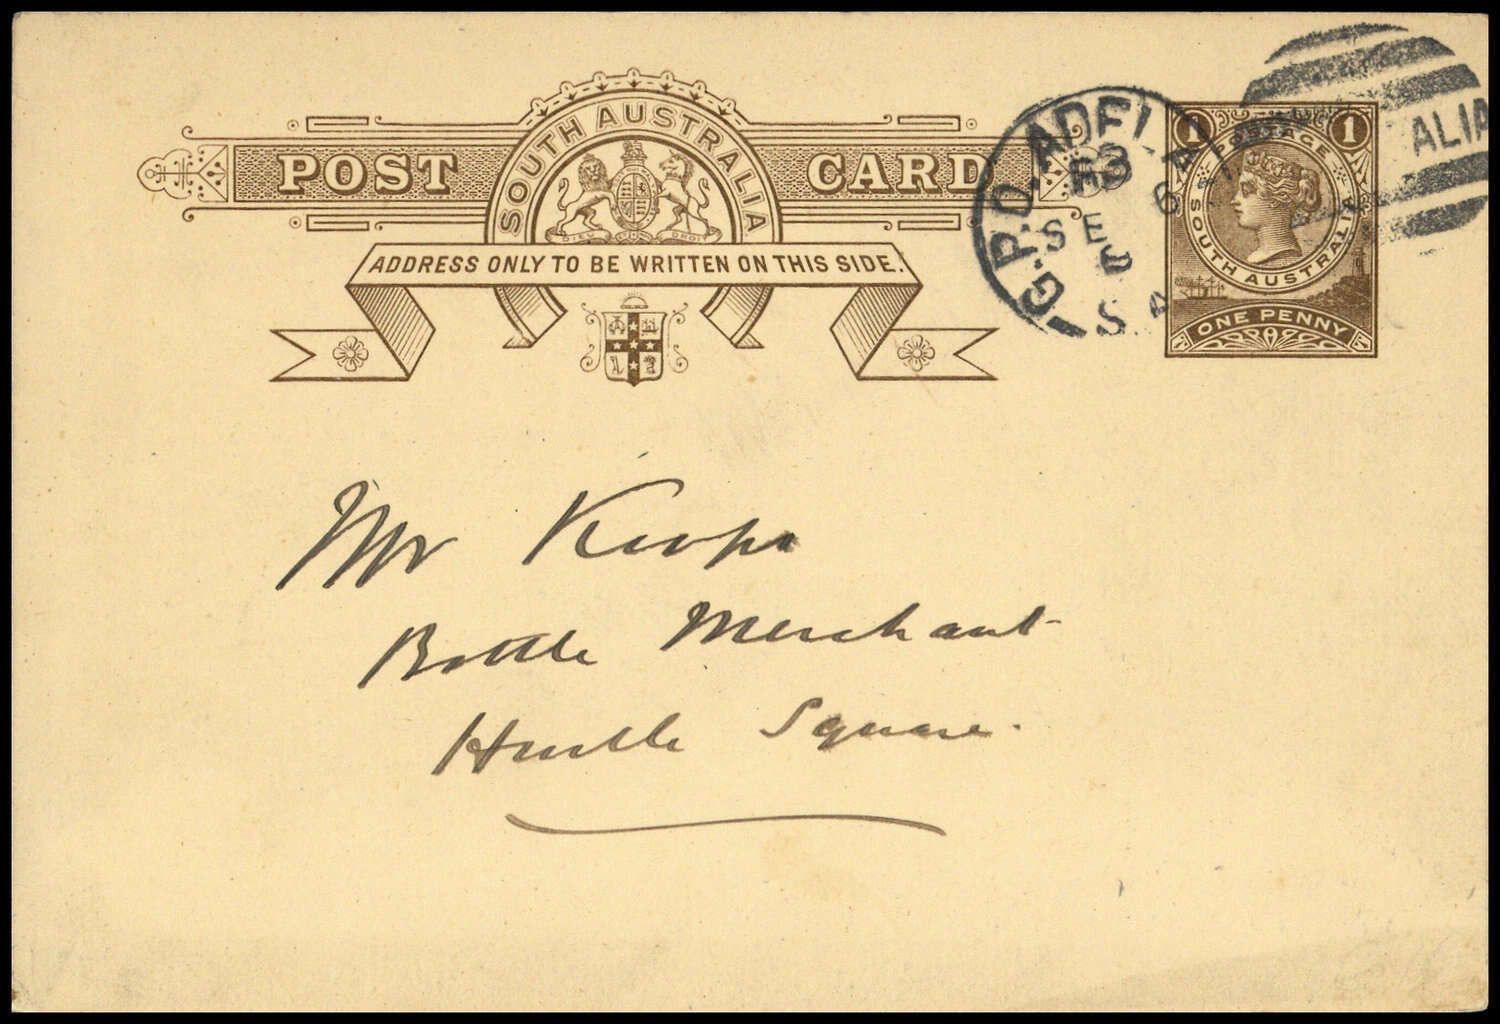 SOUTH AUSTRALIA
POST CARD
DIEU ET MON DROIT
ADDRESS ONLY TO BE WRITTEN ON THIS SIDE.
G.P.O. ADELA
SE
S.A
ALIA
1 1
POSTAGE
SOUTH AUSTRALIA
ONE PENNY
Mr
Bottle Merchant
Square.